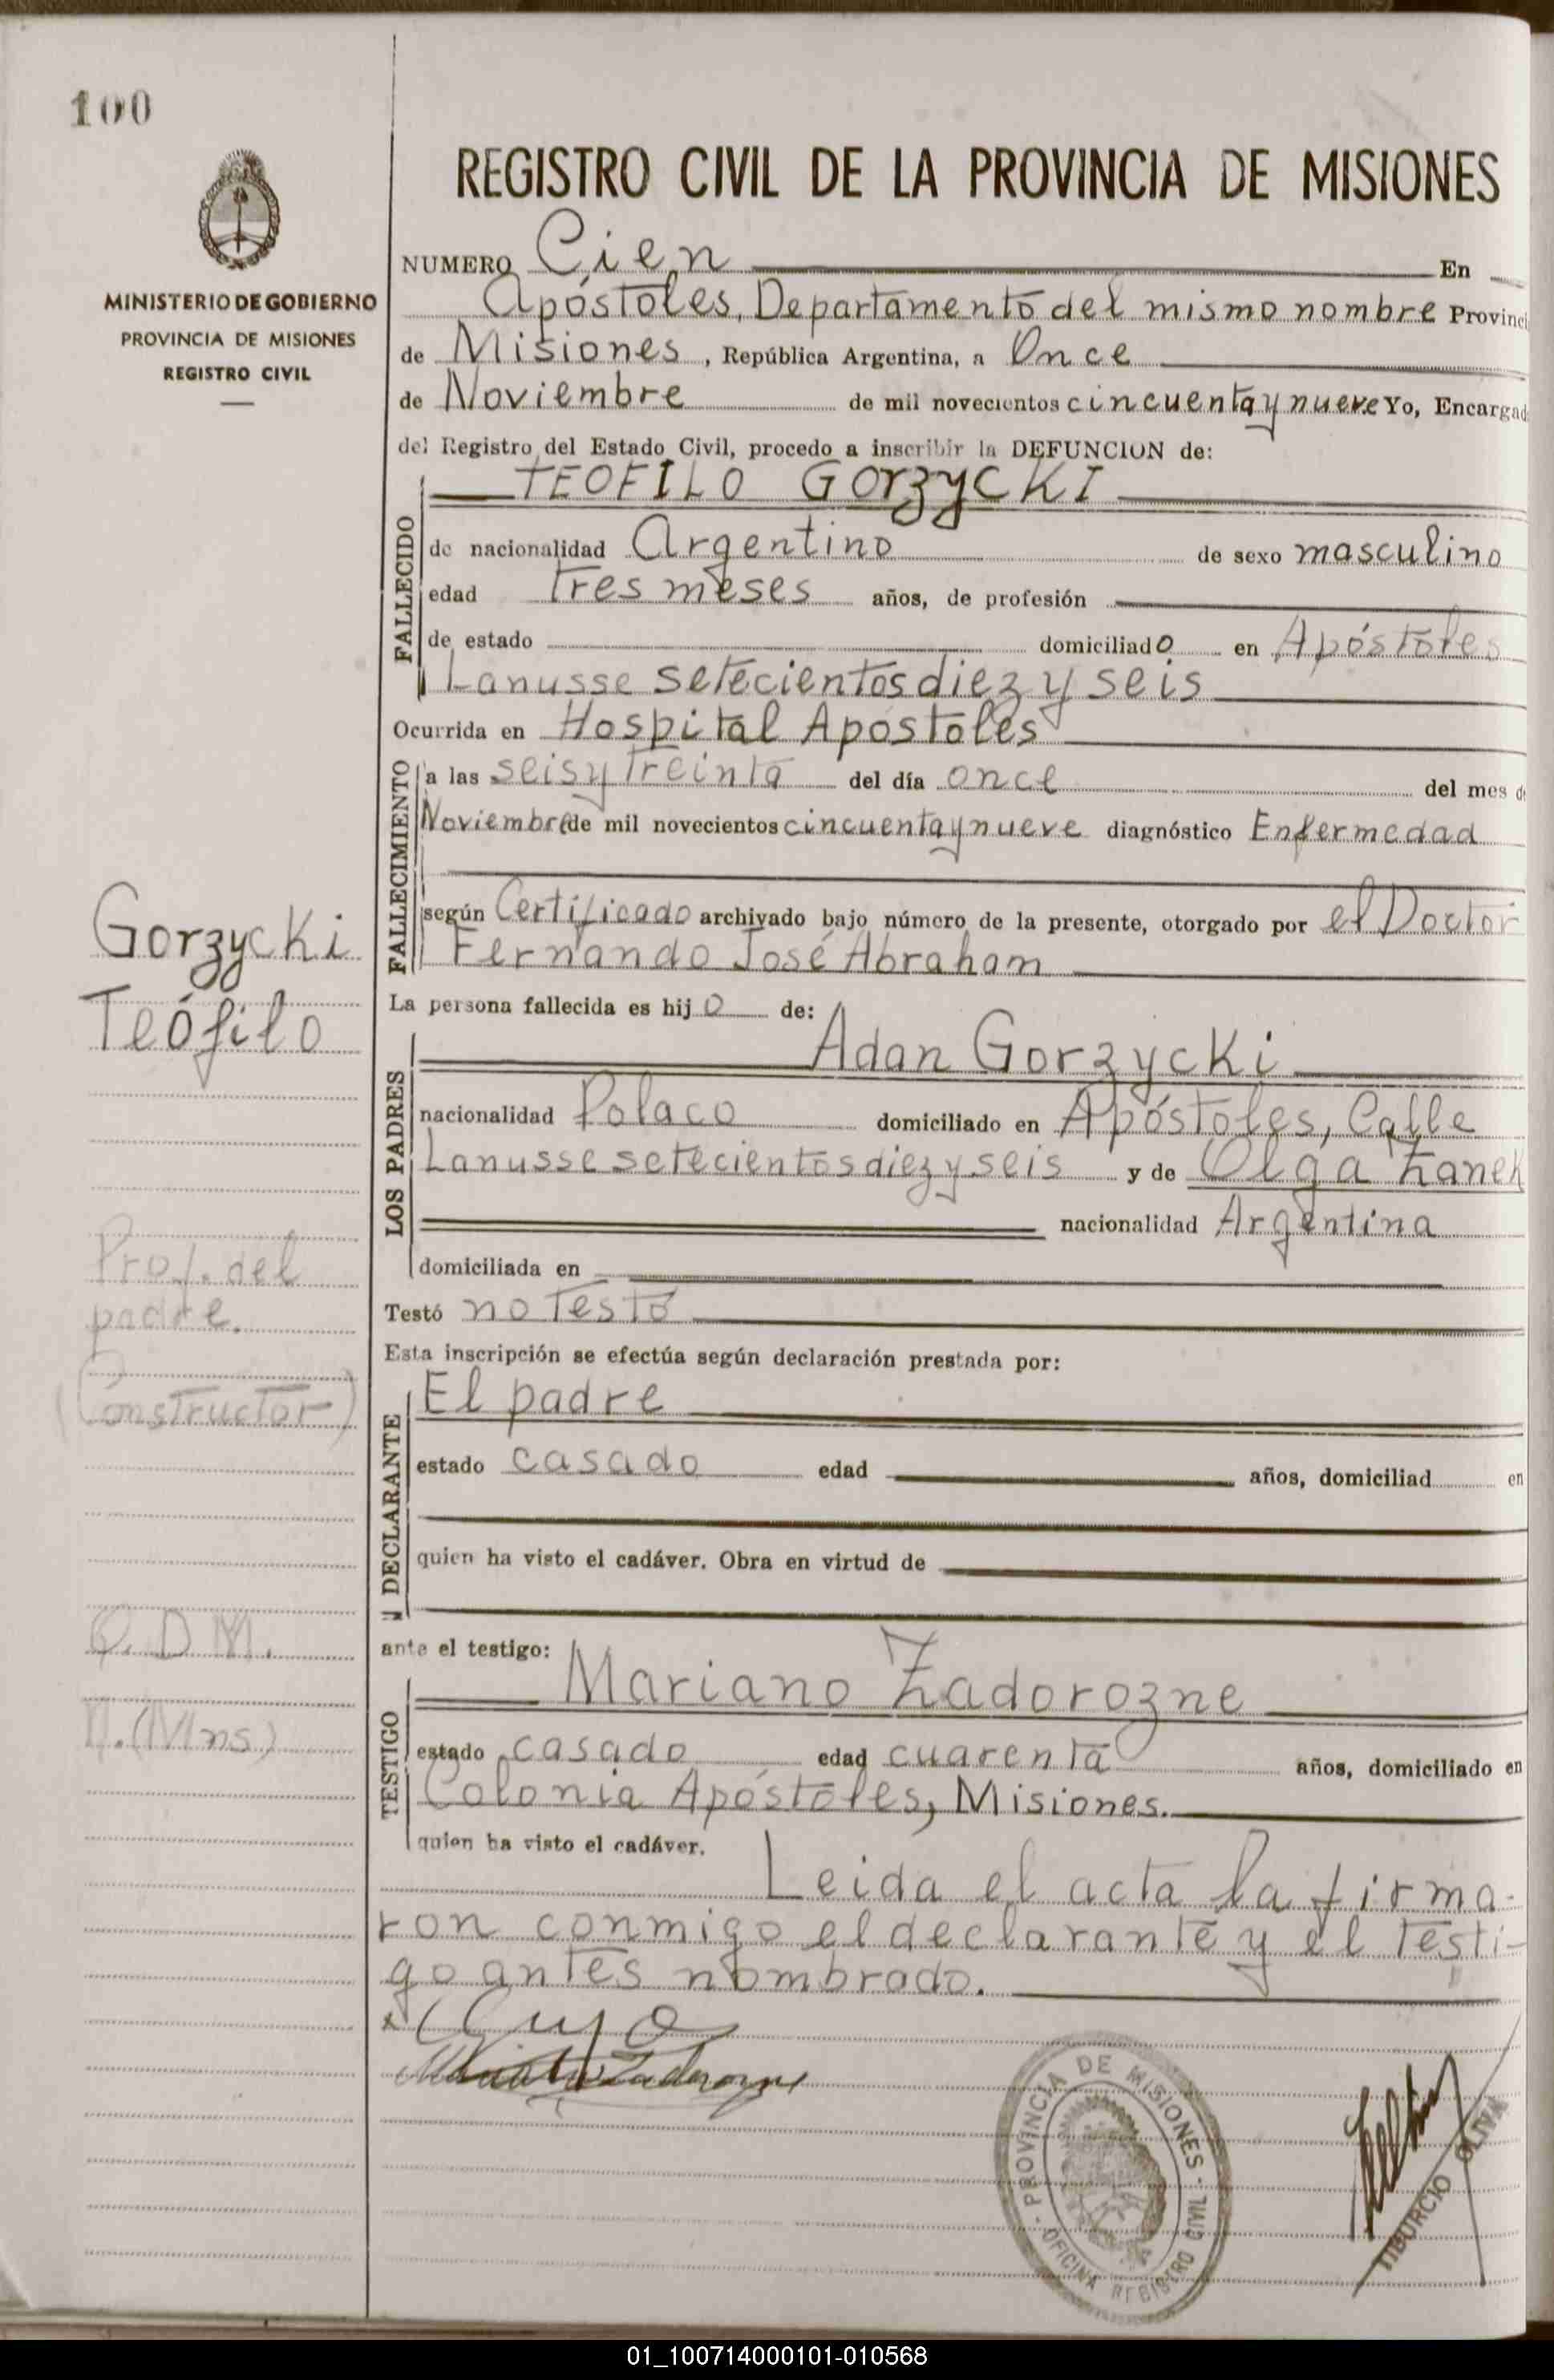 100
MINISTERIO DE GOBIERNO
PROVINCIA DE MISIONES
REGISTRO CIVIL
REGISTRO CIVIL DE LA PROVINCIA DE MISIONES
NUMERO Cien En
Apóstoles, Departamento del mismo nombre Provinci
de Misiones, República Argentina, a Once
de Noviembre de mil novecientos cincuenta y nueve Yo, Encargad
del Registro del Estado Civil, procedo a inscribir la DEFUNCION de:
TEOFILO GORZYCKI
FALLECIDO
de nacionalidad Argentino de sexo masculino
edad Tres meses años, de profesión
de estado domiciliado en Apóstoles
Lanusse setecientos diez y seis
Ocurrida en Hospital Apóstoles
FALLECIMIENTO
a las seis y Treinta del día once del mes d
Noviembre de mil novecientos cincuenta y nueve diagnóstico Enfermedad
según Certificado archivado bajo número de la presente, otorgado por el Doctor
Fernando José Abraham
La persona fallecida es hijo de:
Adan Gorzycki
LOS PADRES
nacionalidad Polaco domiciliado en Apóstoles, Calle
Lanusse setecientos diez y seis y de Olga Zanek
nacionalidad Argentina
domiciliada en
Testó no Testó
Esta inscripción se efectúa según declaración prestada por:
El padre
DECLARANTE
estado casado edad años, domiciliad en
quien ha visto el cadáver. Obra en virtud de
ante el testigo:
Mariano Zadorozne
TESTIGO
estado casado edad cuarenta años, domiciliado en
Colonia Apóstoles, Misiones.
quien ha visto el cadáver.
Leida el acta la firma-
ron conmigo el declarante y el Testi-
go antes nombrado.
Gorzycki
Teófilo
Prof. del
padre.
(Constructor)
O. D. M.
N. (Mns)
PROVINCIA DE MISIONES - OFICINA REGISTRO CIVIL
TIBURCIO OLIVA
01_100714000101-010568